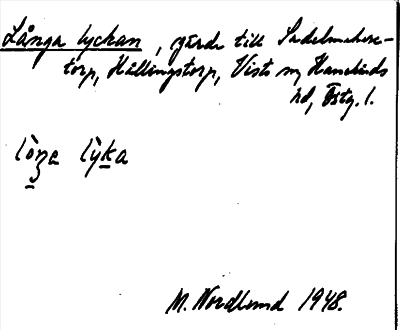 Långa lyckan, gärde till Sadelmakare-
torp, Hällingstorp, Vists sn, Hanekinds
hd, Östg. l.
lòŋa lỳka
M. Nordlund 1948.